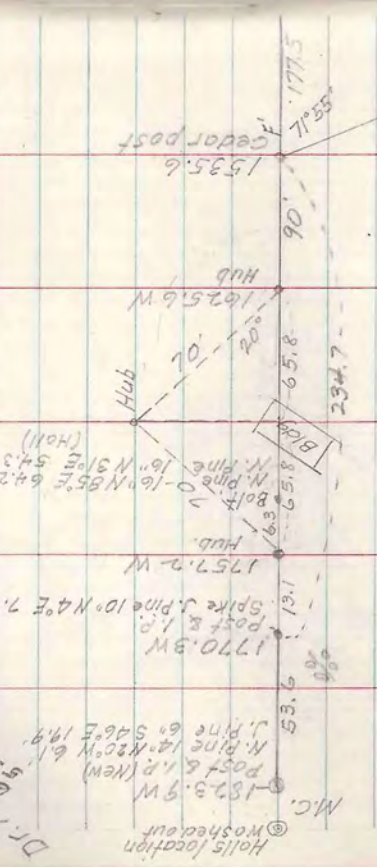 177.5
71°55'
F'
Cedar post
1535.6
90'
Hub
1625.6 W
70'
20°
65.8
234.7
Hub
Bldg.
(Hall)
N. Pine 16" N 31° E 54.3
N. Pine 16" N 85° E 64.2
Bolt
70
6.3
65.8
Hub.
1757.2 W
13.1
Spike J. Pine 10" N 4° E 7.
Post & I.P.
1770.3 W
53.6
J. Pine 6" S 46° E 19.9'
N. Pine 14" N 20° W 6.1'
Post & I.P. (New)
1823.9 W
M.C.
Washed out
Halls location